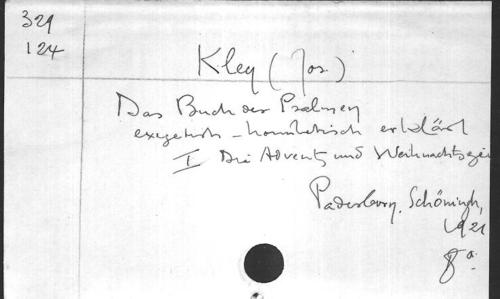 329
124
Kley (Jos.)
Das Buch der Psalmen
exegetisch-homiletisch erklärt
I Die Advents und Weihnachtszei
Paderborn, Schöningh,
1921
8°.